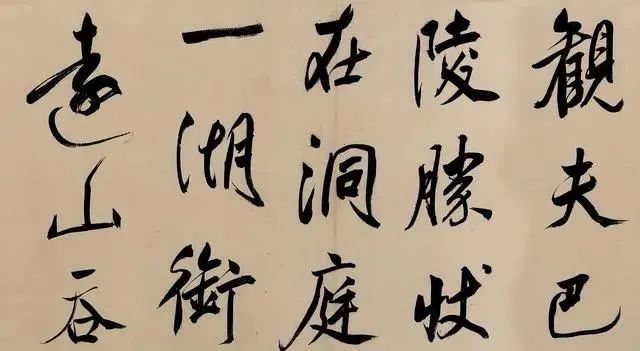 観夫巴
陵勝状
在洞庭
一湖銜
遠山吞